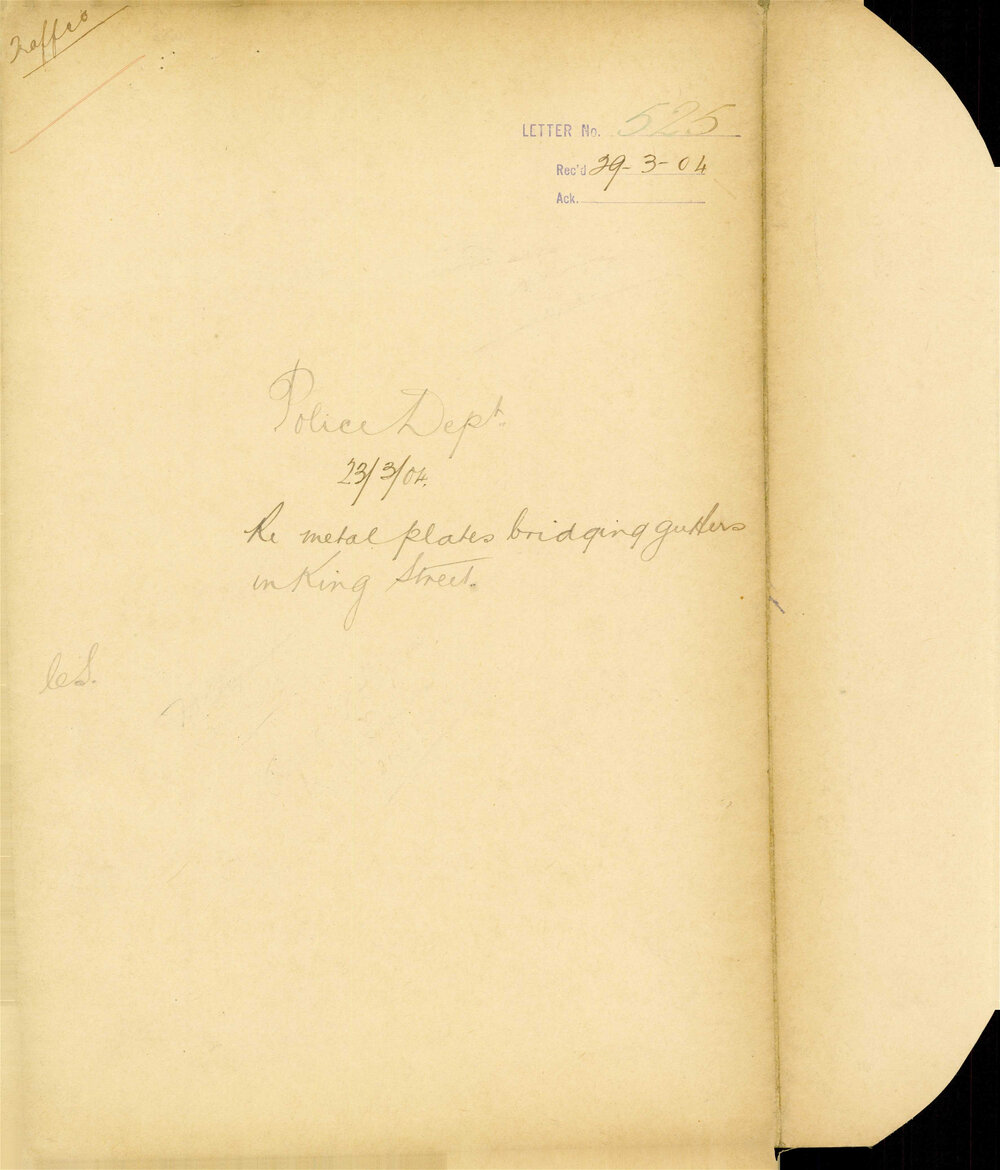 Traffic
LETTER No. 525
Rec'd 29-3-04
Ack.
Police Dept.
23/3/04.
Re metal plates bridging gutters
in King Street.
C.S.